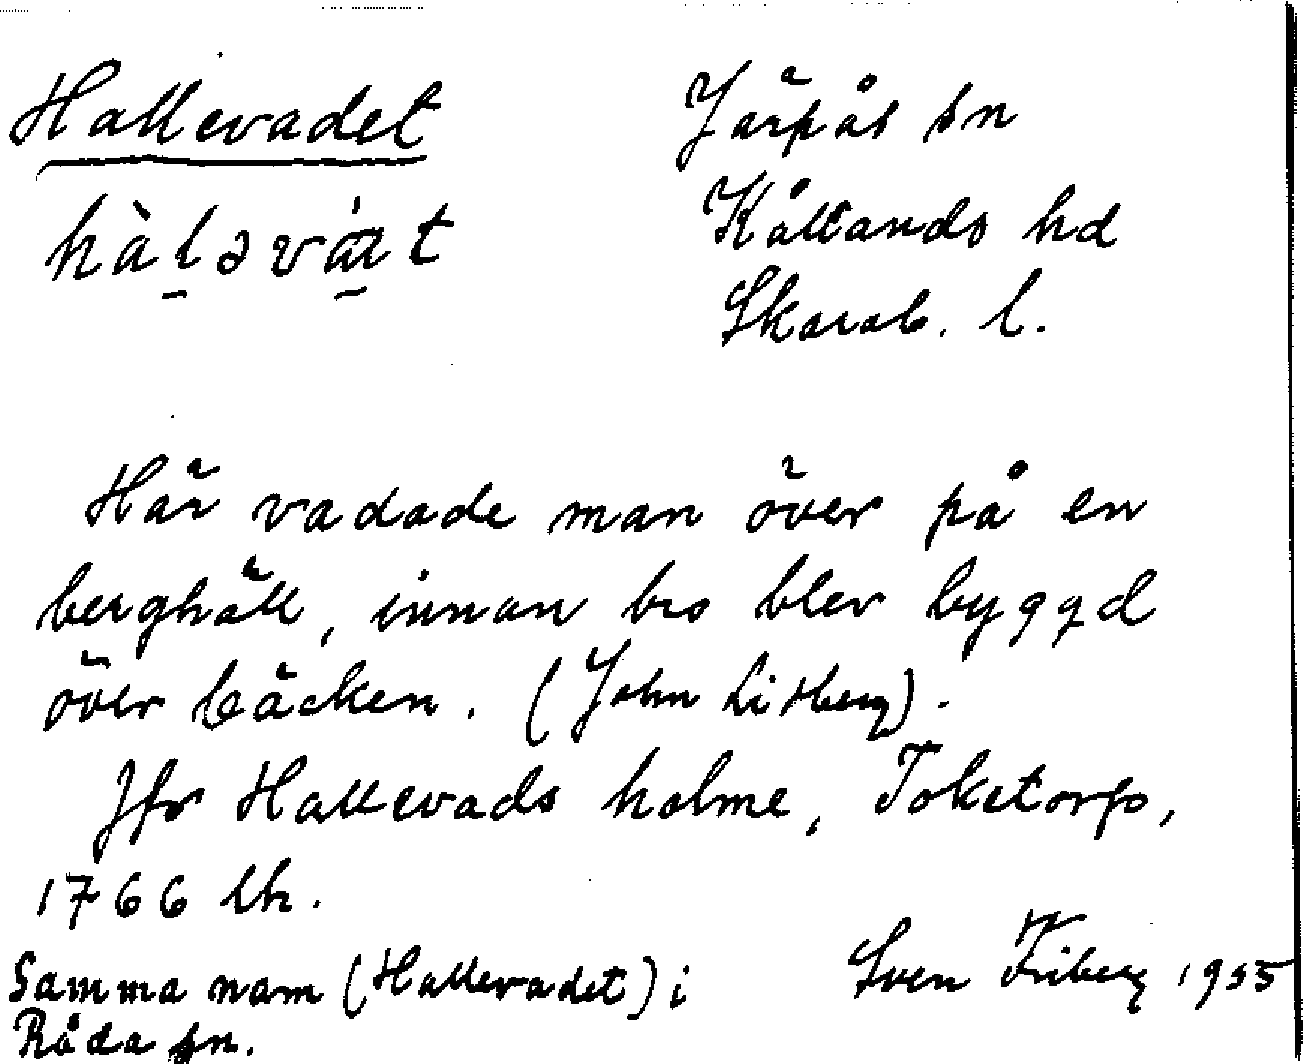 Hallevadet
hàl̠əvát̠
Järpås sn
Kållands hd
Skarab. l.
Här vadade man över på en
berghäll, innan bro blev byggd
över bäcken. (John Lidberg).
Jfr Hallevads holme, Toketorp,
1766 lh.
Sven Friberg 1955
Samma namn (Hallevadet) i
Råda sn.